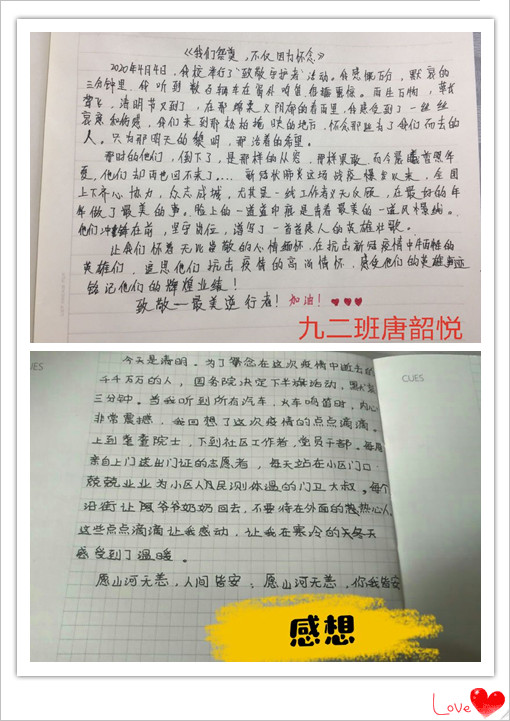 《我们祭奠，不仅因为怀念》
2020年4月4日，我校举行了"致敬守护者"活动。我思慨万分，默哀的
三分钟里，我听到数百辆车在窗外鸣笛
草长
莺飞，清明节又到了，在那如来又阴郁的春雨里，我感受到了一丝丝
哀寒和伤感，我们来到那松柏掩映的地方，怀念那些为了我们而去的
人。只为那明天的黎明，那活着的希望。
那时的他们，倒下了，是那样的从容，那样果敢，而今晨曦普照华
夏，他们却再也回不来了…… 新冠状肺炎这场战疫爆发以来，全国
上下齐心协力，众志成城，尤其是一线工作者义无反顾，在最好的年
华做了最美的事。脸上的一道道印痕是青春最美的一道风景线。
他们冲锋在前，坚守岗位，谱写了一首首感人的英雄壮歌。
让我们怀着无比崇敬的心情缅怀在抗击新冠疫情中牺牲的
英雄们，追思他们抗击疫情的高尚情怀，感受他们的英雄事迹
铭记他们的辉煌业绩！
致敬——最美逆行者！加油！
九二班唐韶悦
UES
CUES
今天是清明。为了悼念在这次疫情中逝去的
千千万万的人，国务院决定下半旗活动，默哀
三分钟。当我听到所有汽车，火车鸣笛时，内心
非常震撼，我回想了这次疫情的点点滴滴。
上到 院士，下到社区工作者，党员干部。每周
亲自上门送出门证的志愿者，每天站在小区门口
兢兢业业为小区人民测体温的门卫大叔。每个
沿街让阿爷爷奶奶回去，不要待在外面的热心人
这些点点滴滴让我感动，让我在寒冷的冬天
感受到了温暖。
愿山河无恙，人间皆安；愿山河无恙，你我皆安
感想
Love